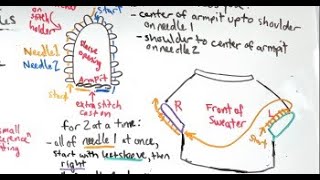 on
stitch
holder
start
Needle 1
Needle 2
sleeve
opening
Armpit
start
extra stitch
cast on
- center of armpit up to shoulder
on needle 1
- shoulder to center of armpit
on needle 2
for 2 at a time:
- all of needle 1 at once,
start with left sleeve, then
right
R
Front of
Sweater
L
start
small